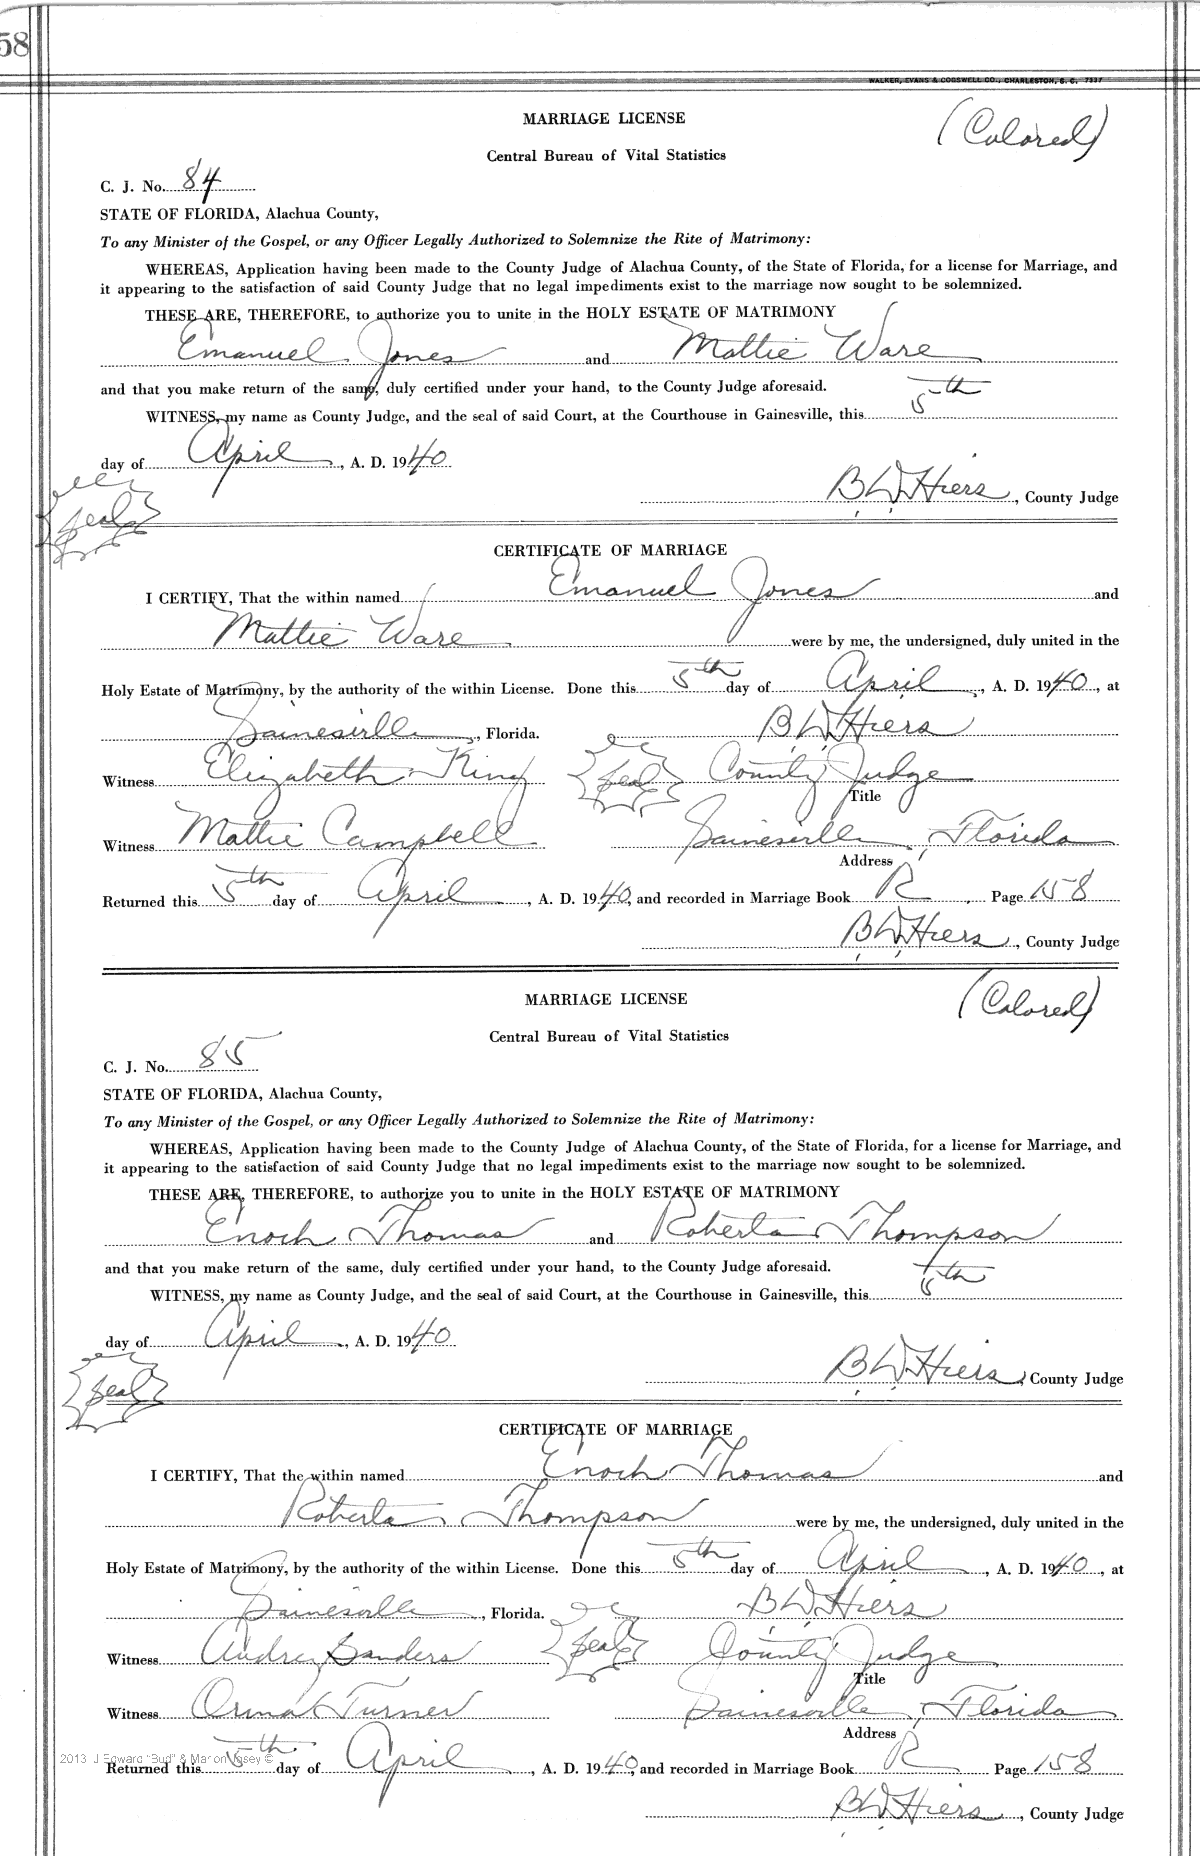 58
WALKER, EVANS & COGSWELL CO., CHARLESTON, S. C. 7337
MARRIAGE LICENSE
(Colored)
Central Bureau of Vital Statistics
C. J. No. 84
STATE OF FLORIDA, Alachua County,
To any Minister of the Gospel, or any Officer Legally Authorized to Solemnize the Rite of Matrimony:
WHEREAS, Application having been made to the County Judge of Alachua County, of the State of Florida, for a license for Marriage, and
it appearing to the satisfaction of said County Judge that no legal impediments exist to the marriage now sought to be solemnized.
THESE ARE, THEREFORE, to authorize you to unite in the HOLY ESTATE OF MATRIMONY
Emanuel Jones and Mattie Ware
and that you make return of the same, duly certified under your hand, to the County Judge aforesaid.
WITNESS, my name as County Judge, and the seal of said Court, at the Courthouse in Gainesville, this 5th
day of April, A. D. 1940
B W Hiers, County Judge
Seal
CERTIFICATE OF MARRIAGE
I CERTIFY, That the within named Emanuel Jones and
Mattie Ware were by me, the undersigned, duly united in the
Holy Estate of Matrimony, by the authority of the within License. Done this 5th day of April, A. D. 1940, at
Gainesville, Florida. B W Hiers
Witness Elizabeth King Seal County Judge
Title
Witness Mattie Campbell Gainesville, Florida
Address
Returned this 5th day of April, A. D. 1940, and recorded in Marriage Book R Page 158
B W Hiers, County Judge
MARRIAGE LICENSE
(Colored)
Central Bureau of Vital Statistics
C. J. No. 85
STATE OF FLORIDA, Alachua County,
To any Minister of the Gospel, or any Officer Legally Authorized to Solemnize the Rite of Matrimony:
WHEREAS, Application having been made to the County Judge of Alachua County, of the State of Florida, for a license for Marriage, and
it appearing to the satisfaction of said County Judge that no legal impediments exist to the marriage now sought to be solemnized.
THESE ARE, THEREFORE, to authorize you to unite in the HOLY ESTATE OF MATRIMONY
Enoch Thomas and Roberta Thompson
and that you make return of the same, duly certified under your hand, to the County Judge aforesaid.
WITNESS, my name as County Judge, and the seal of said Court, at the Courthouse in Gainesville, this 5th
day of April, A. D. 1940
B W Hiers, County Judge
Seal
CERTIFICATE OF MARRIAGE
I CERTIFY, That the within named Enoch Thomas and
Roberta Thompson were by me, the undersigned, duly united in the
Holy Estate of Matrimony, by the authority of the within License. Done this 5th day of April, A. D. 1940, at
Gainesville, Florida. B W Hiers
Witness Audrey Sanders Seal County Judge
Title
Witness Orma Turner Gainesville, Florida
Address
2013 J Edward "Bud" & Marion Josey ©
Returned this 5th day of April, A. D. 1940, and recorded in Marriage Book R Page 158
B W Hiers, County Judge